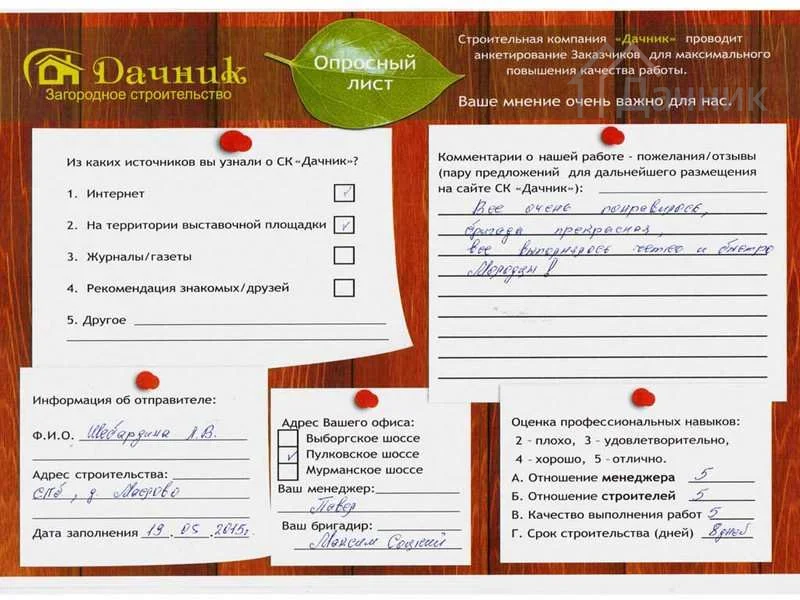 Дачник
Загородное строительство
Опросный
лист
Строительная компания «Дачник» проводит
анкетирование Заказчиков для максимального
повышения качества работы.
Ваше мнение очень важно для нас.
Дачник
Из каких источников вы узнали о СК «Дачник»?
1. Интернет
2. На территории выставочной площадки
3. Журналы/газеты
4. Рекомендация знакомых/друзей
5. Другое
Комментарии о нашей работе - пожелания/отзывы
(пару предложений для дальнейшего размещения
на сайте СК «Дачник»):
Все очень понравилось,
бригада прекрасная,
все выполнялось четко и быстро
Молодцы!
Информация об отправителе:
Ф.И.О. Л.В.
Адрес строительства:
СПб, д.
Дата заполнения 19.05.2015г.
Адрес Вашего офиса:
Выборгское шоссе
Пулковское шоссе
Мурманское шоссе
Ваш менеджер:
Павел
Ваш бригадир:
Максим
Оценка профессиональных навыков:
2 - плохо, 3 - удовлетворительно,
4 - хорошо, 5 - отлично.
А. Отношение менеджера 5
Б. Отношение строителей 5
В. Качество выполнения работ 5
Г. Срок строительства (дней) 8 дней